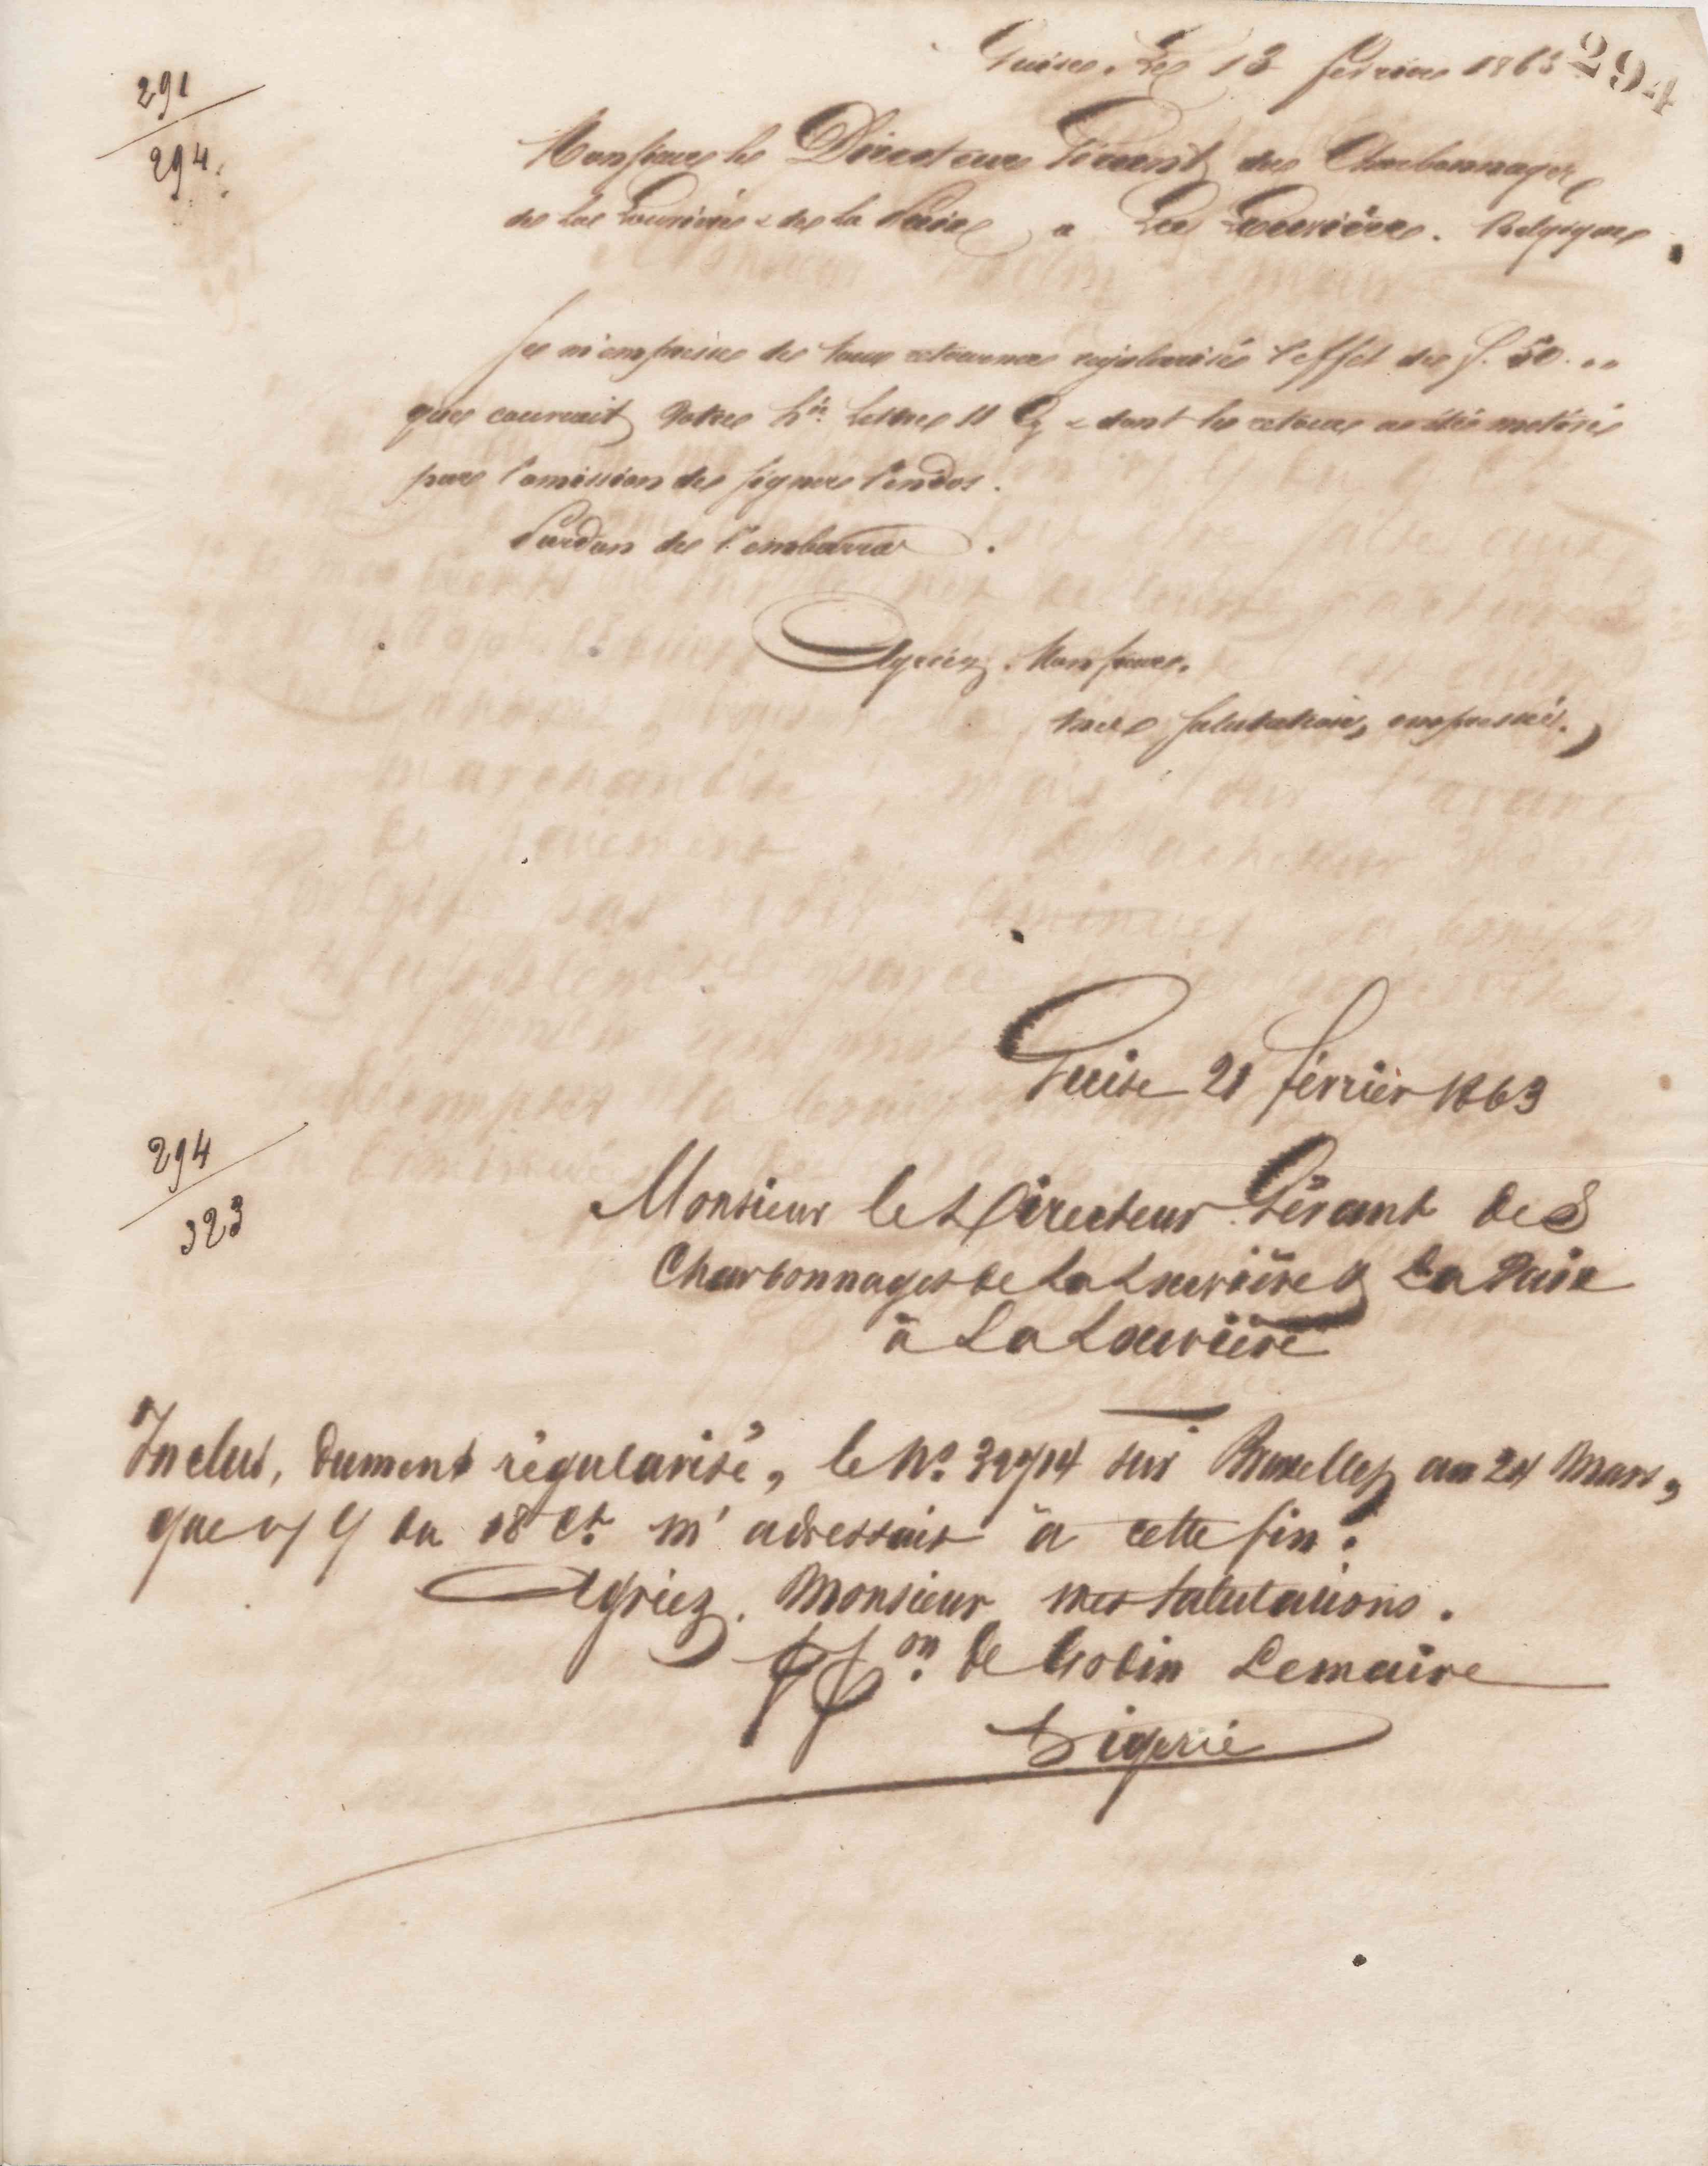 294
Guise, Le 13 février 1863
291
294
Monsieur le Directeur Gérant des Charbonnages
de La Louvière & de la Paix à La Louvière. Belgique
Je m'empresse de vous retourner régularisé l'effet de f. 50 ..
que couvrait votre lettre 11 & dont le retour a été motivé
par l'omission de signer l'endos.
Pardon de l'embarras.
Agréez, Monsieur,
mes salutations empressées.
Guise 21 février 1863
294
323
Monsieur le Directeur Gérant des
Charbonnages de La Louvière & La Paix
à La Louvière
Inclus, dument régularisé, le No. sur Bruxelles au 24 Mars,
que du 18 Ct. m'adressait à cette fin.
Agréez, Monsieur mes salutations.
on. de Godin Lemaire